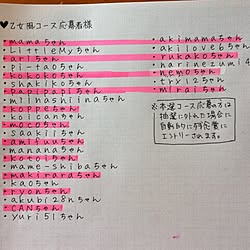 ♥乙女風コース応募者様
・mamaちゃん
・LittleMyちゃん
・ariちゃん
・pi-taoちゃん
・kokokoちゃん
・shakikoちゃん
・papipapiちゃん
・minashiinaちゃん
・koppeちゃん
・koicanちゃん
・mocoちゃん
・saakiiちゃん
・amifuuちゃん
・mananaちゃん
・kotoiちゃん
・mame-shibaちゃん
・makiraraちゃん
・kaoちゃん
・tryonちゃん
・akubi28nちゃん
・CANちゃん
・yuri51ちゃん
・akimamaちゃん
・akilove6ちゃん
・rukakoちゃん
・harinezumi4
・nemoちゃん
・try12ちゃん
・miraiちゃん
抽選に外れた場合に
自動的に
エントリーされます。